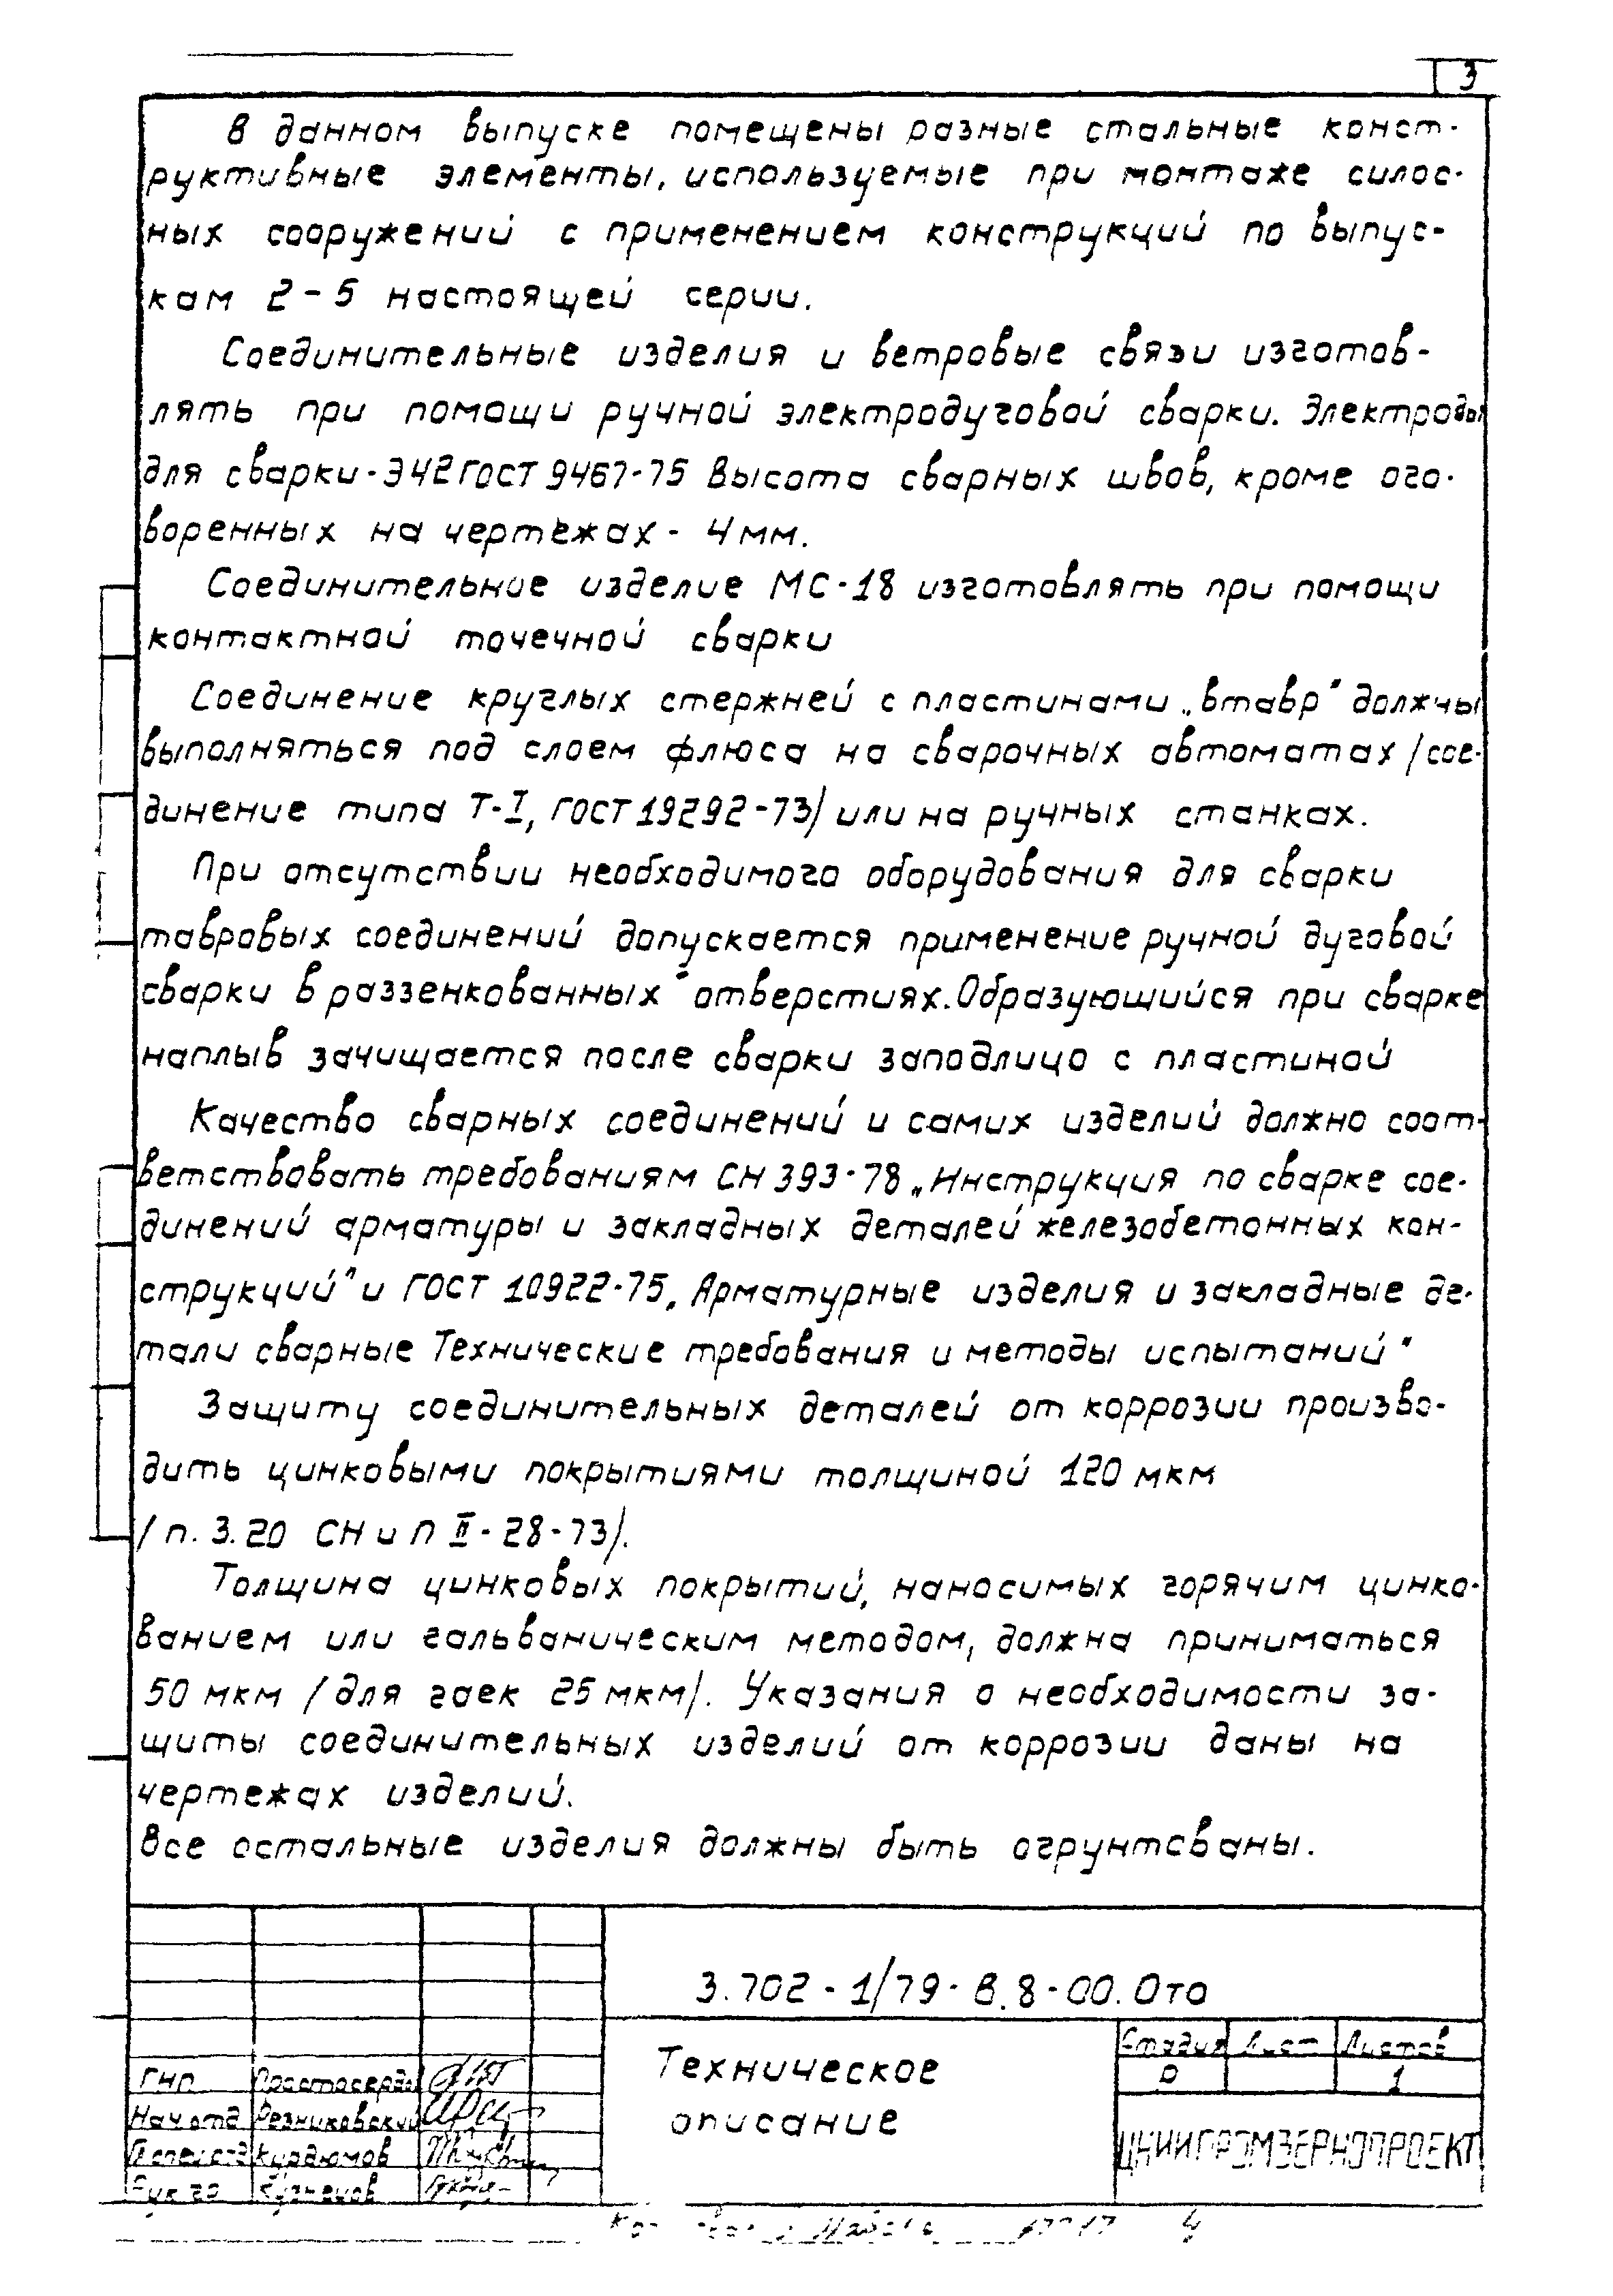 3
В данном выпуске помещены разные стальные конст-
руктивные элементы, используемые при монтаже силос-
ных сооружений с применением конструкций по выпус-
кам 2-5 настоящей серии.
Соединительные изделия и ветровые связи изготов-
лять при помощи ручной электродуговой сварки. Электроды
для сварки - Э42 ГОСТ 9467-75 Высота сварных швов, кроме ого-
воренных на чертежах - 4мм.
Соединительное изделие МС-18 изготовлять при помощи
контактной точечной сварки
Соединение круглых стержней с пластинами „втавр" должны
выполняться под слоем флюса на сварочных автоматах /сое-
динение типа Т-I, ГОСТ 19292-73/ или на ручных станках.
При отсутствии необходимого оборудования для сварки
тавровых соединений допускается применение ручной дуговой
сварки в раззенкованных" отверстиях. Образующийся при сварке
наплыв зачищается после сварки заподлицо с пластиной
Качество сварных соединений и самих изделий должно соот-
ветствовать требованиям СН 393-78 „Инструкция по сварке сое-
динений арматуры и закладных деталей железобетонных кон-
струкций" и ГОСТ 10922-75 „Арматурные изделия и закладные де-
тали сварные Технические требования и методы испытаний"
Защиту соединительных деталей от коррозии произво-
дить цинковыми покрытиями толщиной 120 мкм
/п. 3.20 СНиП II-28-73/.
Толщина цинковых покрытий, наносимых горячим цинко-
ванием или гальваническим методом, должна приниматься
50 мкм /для гаек 25 мкм/. Указания о необходимости за-
щиты соединительных изделий от коррозии даны на
чертежах изделий.
Все остальные изделия должны быть огрунтованы.
3.702-1/79-В.8-00.0то
Техническое
описание
Стадия Лист Листов
Р 1
ЦНИИПРОМЗЕРНОПРОЕКТ
ГИП Простосердов
Нач отд Резниковский
Гл спец отд Курдюмов
Рук гр Кузнецов
4